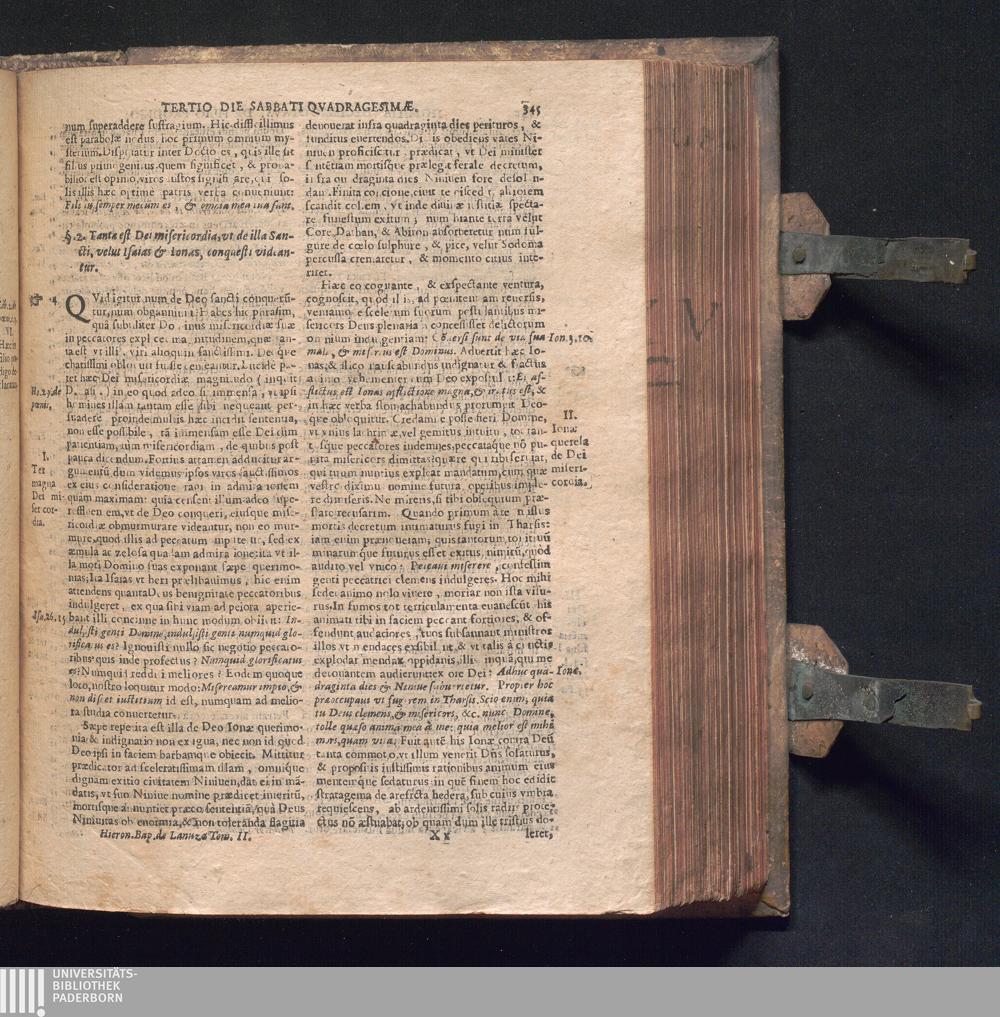 TERTIO DIE SABBATI QVADRAGESIMÆ.
345
num superaddere suffragium. Hic difficillimus
est parabolæ nodus, hoc primum omnium my-
sterium. Disputatur inter Doctores, quis ille sit
filius primogenitus quem significet, & proba-
bilior est opinio, viros iustos significare, qui so-
lis illis hæc optime patris verba conueniunt:
Fili tu semper mecum es, & omnia mea tua sunt.
§. 2. Tanta est Dei misericordia, vt de illa San-
cti, velut Isaias & Ionas, conquesti videan-
tur.
4.
QVid igitur num de Deo sancti conquerū-
tur, num obganniunt? Habes hic phrasim,
qua subtiliter Dominus misericordiæ suæ
in peccatores explicet magnitudinem, quæ tan-
ta est vt illi, viri alioquin sanctissimi, Deique
charissimi obloquuti fuisse censeantur. Lucide pa-
tet hæc Dei misericordiæ magnitudo (inquit
D. ) in eo quod adeo sit immensa, vt ipsi
homines illam tantam esse sibi nequeant per-
suadere proinde multis hæc incidit sententia,
non esse possibile, tā immensam esse Dei cùm
patientiam, tùm misericordiam, de quibus post
pauca dicendum. Fortius attamen adducitur ar-
gumentū dum videmus ipsos viros sanctissimos
ex eius consideratione rapi in admirationem
quàm maximam: quia censent illum adeo supe-
reffluentem, vt de Deo conqueri, eiusque mise-
ricordiæ obmurmurare videantur, non eo mur-
mure, quod illis ad peccatum imputetur, sed ex
æmula ac zelosa quadam admiratione: ita vt il-
la moti Domino suas exponant sæpe querimo-
nias; Ita Isaias vt heri prælibauimus, hic enim
attendens quanta Deus benignitate peccatoribus
indulgeret, ex qua sibi viam ad peiora aperie-
bant illi concinne in hunc modum obiicit: In-
dulsisti genti Domine, indulsisti genti numquid glo-
rificatus es? Ignouisti nullo sic negotio peccato-
ribus quis inde profectus? Numquid glorificatus
es? Numquid redditi meliores? Eodem quoque
loco, nostro loquitur modo: Misereamur impio, &
non discet iustitiam id est, numquam ad melio-
ra studia conuertetur.
Sæpe repetita est illa de Deo Ionæ querimo-
nia & indignatio non exigua, nec non id quod
Deo ipsi in faciem barbamque obiecit. Mittitur
prædicator ad sceleratissimam illam, omnique
dignam exitio ciuitatem Niniuen, dat ei in mā-
datis, vt suo Niniue nomine prædicet interitū,
mortisque annuntiet præco sententiā, quâ Deus
Niniuitas ob enormia, & non toleranda flagitia
Ho. 29. de
pœnit.
I.
Ter
magna
Dei mi-
sericor-
dia.
Isa. 26. 15
deuouerat infra quadraginta dies perituros, &
funditus euertendos. Dictis obediens vates Ni-
niuen proficiscitur prædicat, vt Dei minister
sentētiam mortisque prælegit ferale decretum,
infra quadraginta dies Niniuen fore desolan-
dam. Finita concione, ciuitate discedit, altiorem
scandit collem, vt inde diuinæ iustitiæ specta-
re funestum exitum; num hiante terra velut
Core Dathan, & Abiron absorberetur num ful-
gure de cœlo sulphure, & pice, velut Sodoma
percussa cremaretur, & momento citius inte-
riret.
Hæc eo cogitante, & exspectante ventura,
cognoscit, quod illis, ad pœnitentiam reuersis,
veniamque scelerum suorum postulantibus mi-
sericors Deus plenariam concessisset delictorum
omnium indulgentiam: Conuersi sunt de via sua
mala, & misertus est Dominus. Aduertit hæc Io-
nas; & illico nauseabundus indignatur & fractus
animo vehementer cum Deo expostulat: Et af-
flictus est Ionas afflictione magna, & iratus est, &
in hæc verba stomachabundus prorumpit Deo-
que obloquitur. Credam ne posse fieri Domine,
vt vnius lachrimæ, vel gemitus intuitu, tot tan-
tosque peccatores indemnes, peccataque nō pu-
nita misericors dimittas? quære qui tibi seruiat,
qui tuum nuntius expleat mandatum, cum quæ
vestro diximu nomine futura, operibus imple-
re dimiseris. Ne mireris, si tibi obsequium præ-
stare recusarim. Quando primum à te missus
mortis decretum intimaturus fugi in Tharsis:
iam enim prænoueram; quis tantorum tot ituū
minarumque futurus esset exitus, nimirū, quòd
audito vel vnico: Peccaui miserere, confestim
genti peccatrici clemens indulgeres. Hoc mihi
sedet animo nolo viuere, moriar non ista visu-
rus. In fumos tot terriculamenta euanescūt his
animati tibi in faciem peccant fortiores, & of-
fendunt audaciores, tuos subsannant ministros
illos vt mendaces exsibilant, & vt talis à cunctis
explodar mendax oppidanis, illi inquā, qui me
detonantem audierunt ex ore Dei: Adhuc qua-
draginta dies & Niniue subuertetur. Propter hoc
præoccupaui vt fugerem in Tharsis. Scio enim, quia
tu Deus clemens, & misericors, &c. nunc Domine,
tolle quæso animam meā à me: quia melior est mihi
mors, quam vita; Fuit autē his Ionæ contra Deū
tanta commotio, vt illum venerit Dn̄s solaturus,
& propositis iustissimis rationibus animum eius
mentemque sedaturus in quē finem hoc edidit
stratagema de arefacta hedera, sub cuius vmbra
requiescens, ab ardentissimi solis radiis prote-
ctus nō æstuabat; ob quam dum ille tristius do-
leret,
Ion. 3. 10.
II.
Ionæ
querela
de Dei
miseri-
cordia.
Ionæ.
Hieron. Bap. de Lanuza Tom. II.
X x
UNIVERSITÄTS-
BIBLIOTHEK
PADERBORN